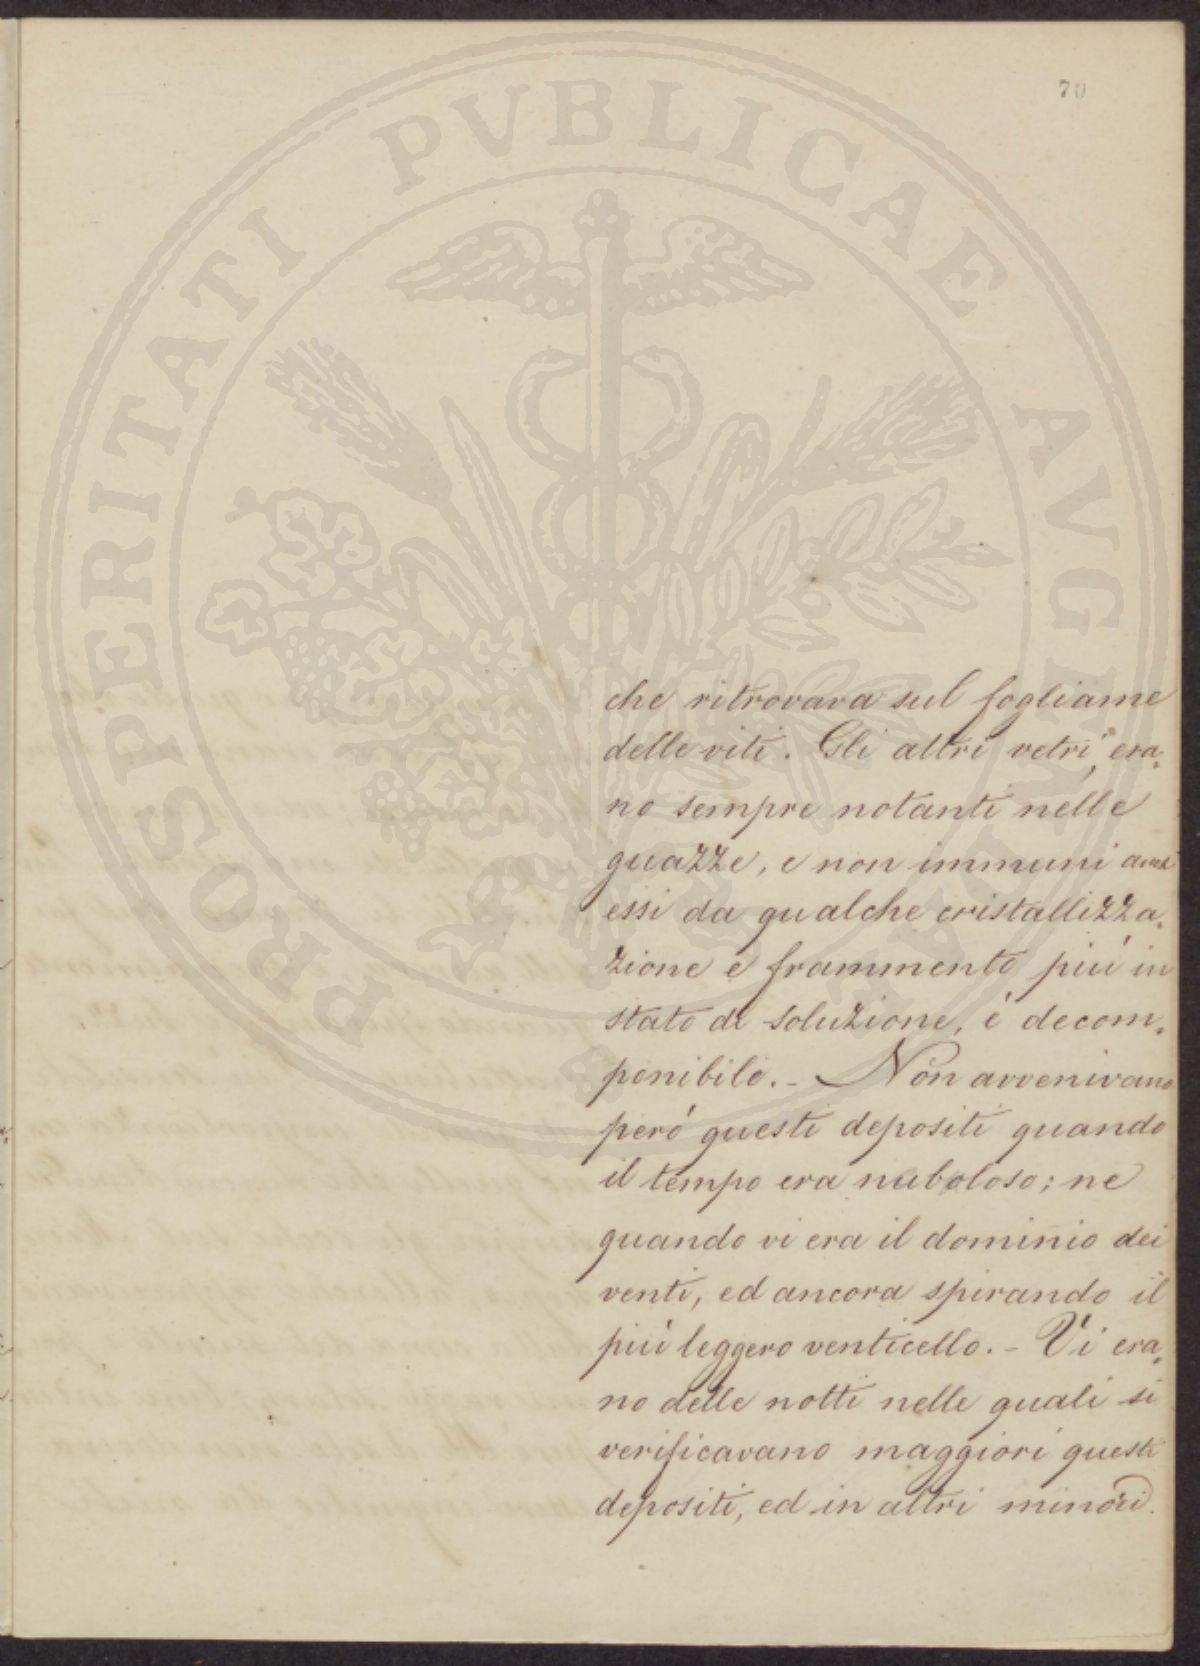 70
PROSPERITATI PVBLICAE AVGENDAE
che ritrovava sul fogliame
delle viti. Gli altri vetri, era„
no sempre notanti nelle
guazze, e non immuni anch'
essi da qualche cristallizza„
zione e frammento piú in
stato di soluzione, é decom„
ponibile. - Non avvenivano
peró questi depositi quando
il tempo era nuboloso; ne
quando vi era il dominio dei
venti, ed ancora spirando il
piú leggero venticello. - Vi era„
no delle notti nelle quali si
verificavano maggiori questi
depositi, ed in altri minori.